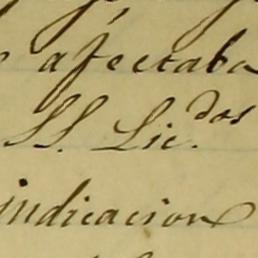 afectaba
SS. Lic.dos
indicacion